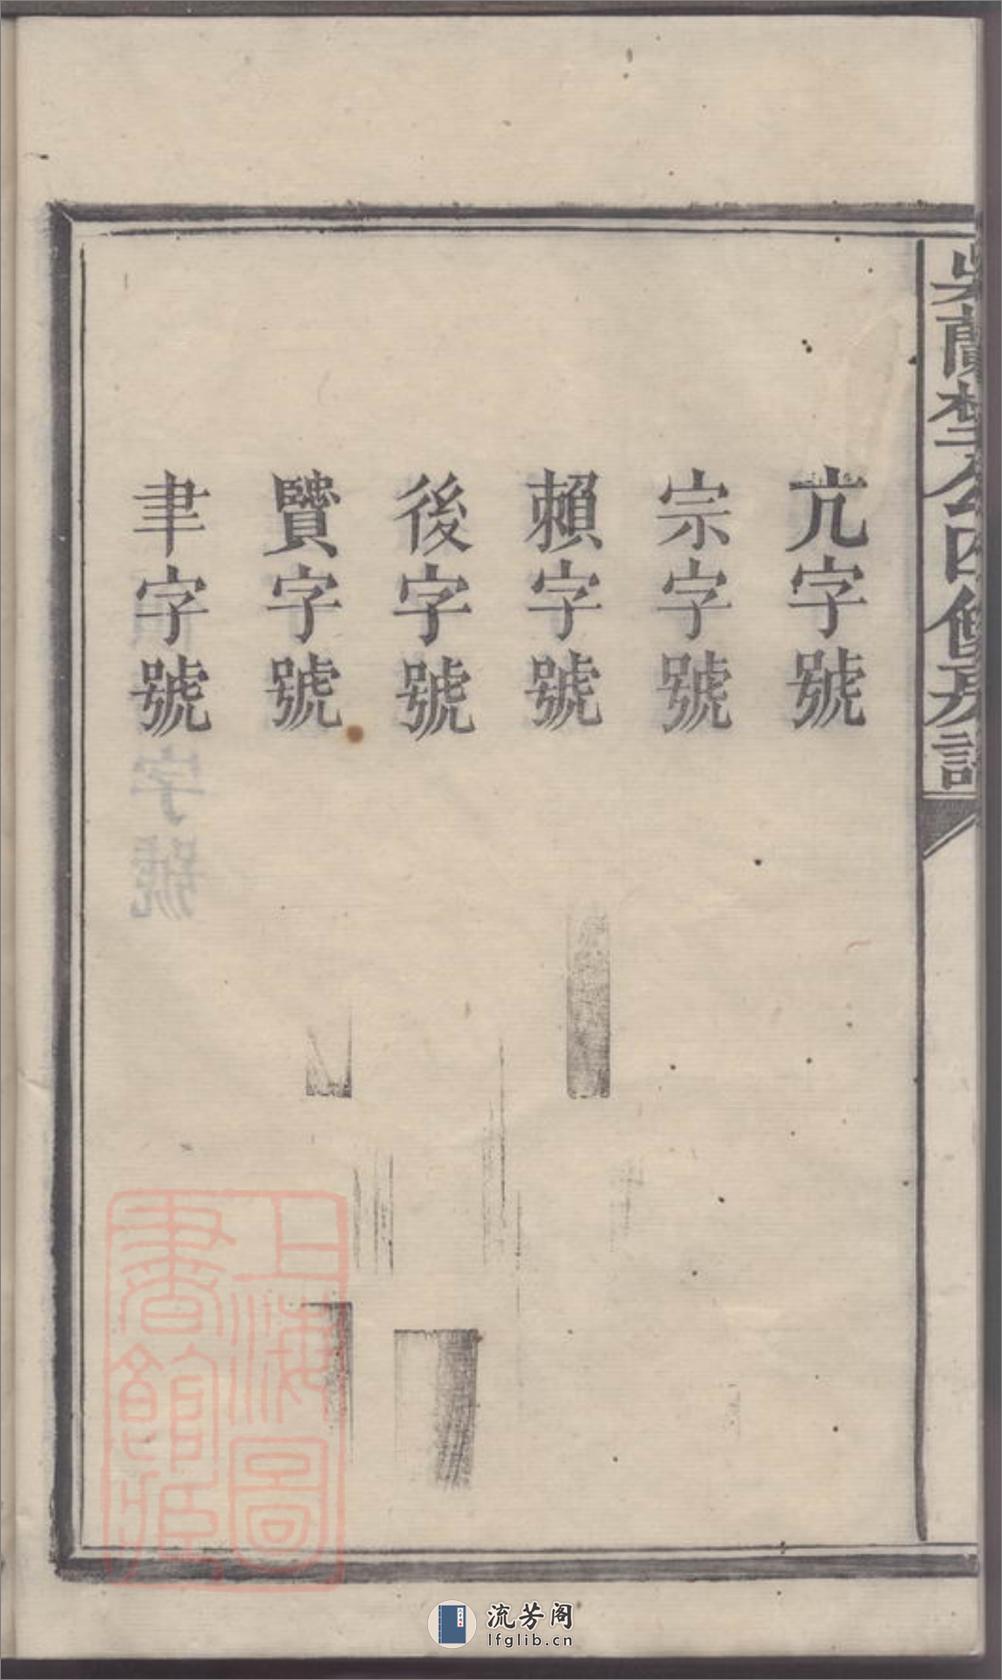 公四修房譜
亢字號
宗字號
賴字號
後字號
賢字號
聿字號
上海圖
書館藏
流芳阁
lfglib.cn